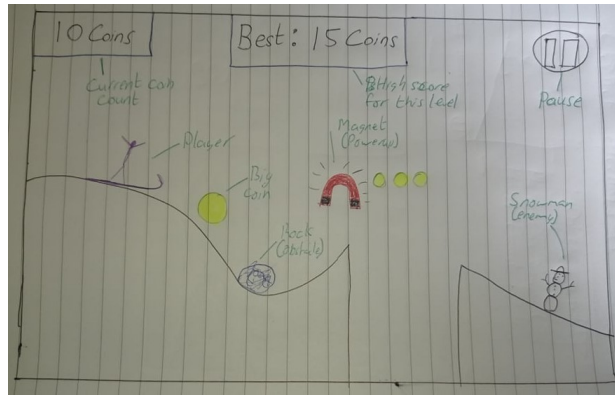 10 Coins
Best: 15 Coins
Current coin
count
High score
for this level
Pause
Player
Magnet
(Powerup)
Big
coin
Rock
(obstacle)
Snowman
(enemy)